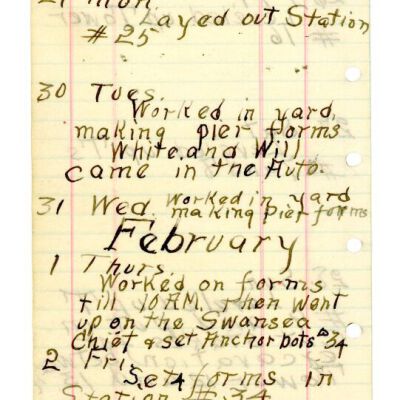 29 Mon.
Layed out Station
# 25
30 Tues.
Worked in yard,
making pier forms
White and Will
came in the Auto.
31 Wed. Worked in yard
making pier forms
February
1 Thurs.
Worked on forms
till 10 AM. then went
up on the Swansea
Chief & set Anchor bots 34
2 Fri.
Set 4 forms in
Station # 34